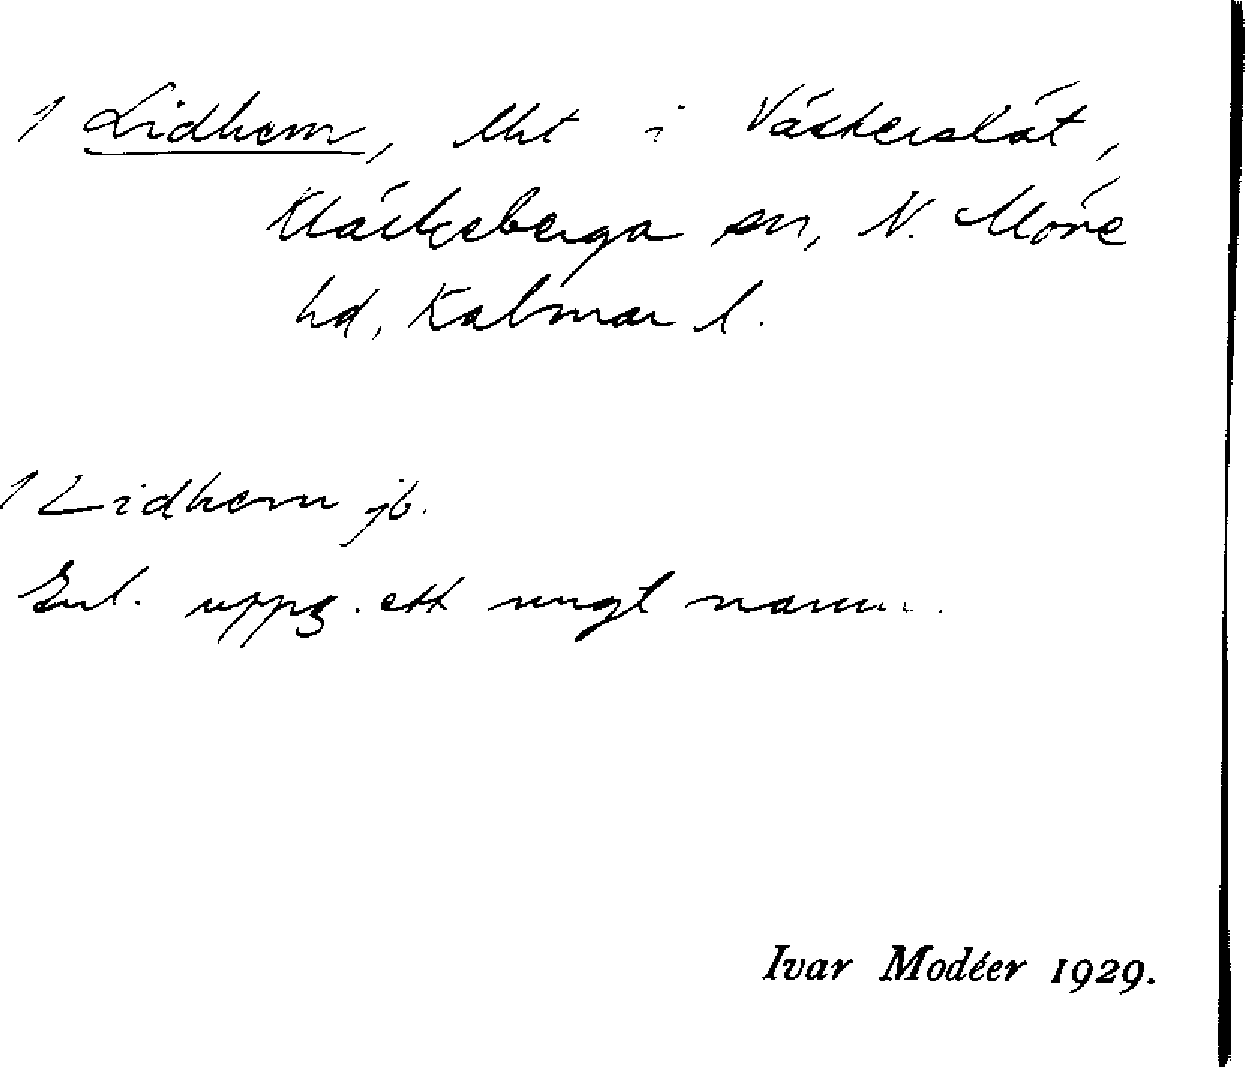 1 Lidhem, lht i Västerslät,
Kläckeberga sn, N. Möre
hd, Kalmar l.
1 Lidhem jb.
Enl. uppg. ett ungt namn.
Ivar Modéer 1929.